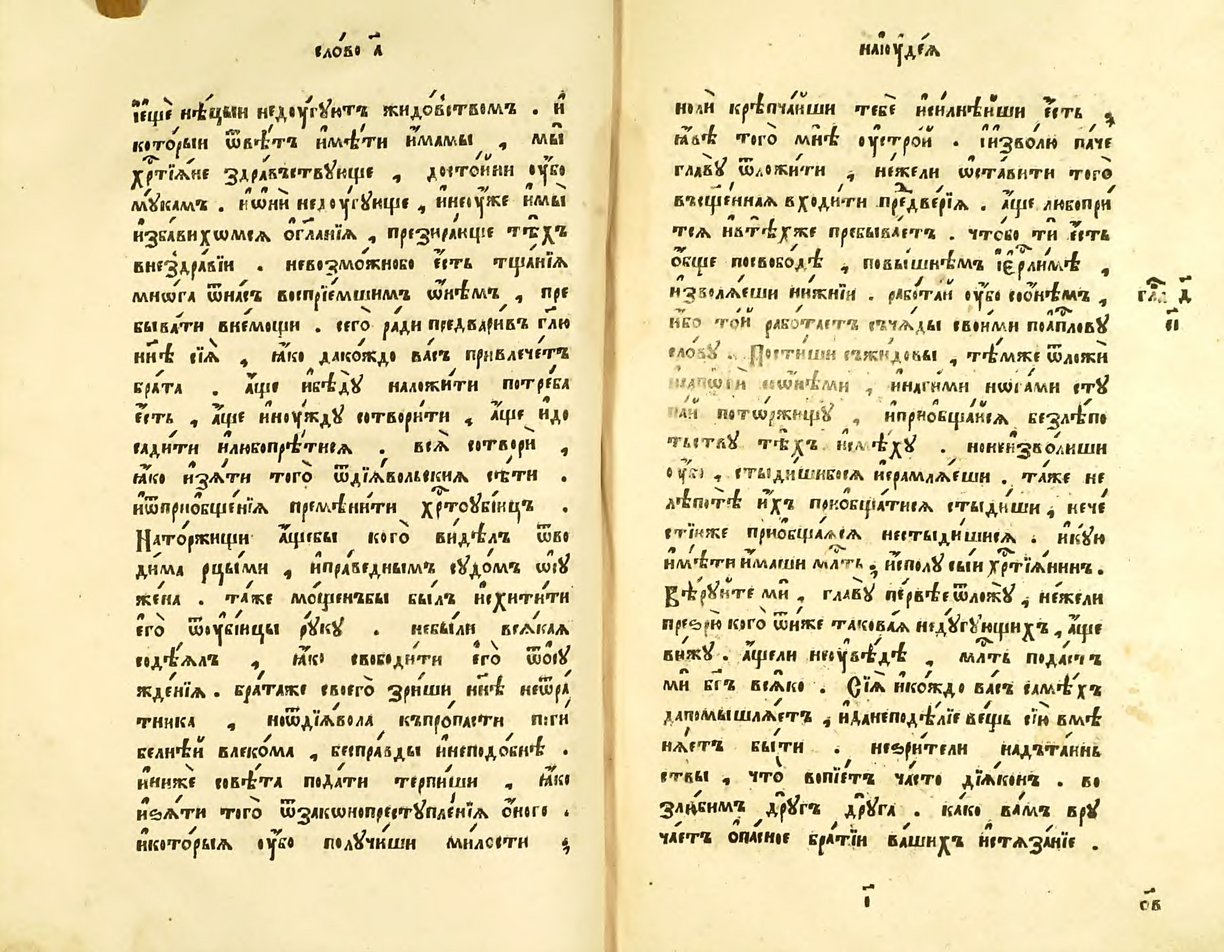 сло́во а҃
і҆ещѐ нѣ́цыи недоу́гꙋютъ жидо́вствомъ . и҆
кото́рыи ѿвѣ́тъ и҆мѣ́ти и҆мамы , мы̀
хрⷭ҇тїѧне здра́въствꙋюще , досто́йни оу҆бо
мꙋ́камъ . и҆ѡ҆нѝ недоу́гꙋюще , и҆неоу҆же и҆мы̀
и҆зба́вихѡмсѧ оглані́ѧ , презира́юще тѣ́хъ
внездра́вїи . невозмо́жнобо є҆сть тща́нїѧ
мнѡ́га ѿна́съ воспрїе́мшимъ ѡ҆нѣ́мъ , пре
быва́ти вне́мощи . сего̀ ра́ди предвари́въ гл҃ю
нн҃ѣ сїѧ̀ , ꙗ҆ко дако́ждо ва́съ привлече́тъ
бра́та . а҆ще и҆бѣдꙋ̀ наложи́ти потре́ба
є҆сть , а҆ще и҆ноу́ждꙋ сотвори́ти , а҆ще и҆до
сади́ти и҆любопрѣ́тисѧ . всѧ̀ сотворѝ ,
ꙗ҆ко и҆зѧ́ти того̀ ѿдїѧ́вольскиѧ сѣ́ти .
и҆ѿприобще́нїѧ премѣни́ти хрⷭ҇тоуби́йцъ .
Нато́ржищи а҆щебы кого̀ ви́дѣлъ ѿво
ди́ма рцы́ми , и҆пра́веднымъ сꙋдо́мъ ѡ҆сꙋ
жена . та́же мо́щенъбы бы́лъ и҆схити́ти
є҆го̀ ѿоуби́йцы рꙋ́кꙋ . небы́ли всѧ́каѧ
содѣ́ѧлъ , ꙗ҆ко свободи́ти є҆го̀ ѿѡсꙋ
жде́нїѧ . бра́таже своего̀ зри́ши нн҃ѣ неѿра́
тника , ноѿдїѧ́вола къпро́пасти поги
белнѣ́й влеко́ма , беспра́вды и҆неподо́бнѣ .
и҆нижѐ совѣ́та пода́ти терпи́ши , ꙗ҆ко
и҆зѧ́ти того̀ ѿзако́нопрестꙋпле́нїѧ ѻ҆ного .
и҆кото́рыѧ оу҆бо полꙋчи́ши ми́лости ;
наїоуде́ѧ
ноли̂ крѣпча́йши тебѐ и҆силнѣ́йши є҆сть ,
ꙗ҆вѣ̀ того̀ мнѣ̀ оу҆стро́й . и҆зво́лю па́че
главꙋ̀ ѿложи́ти , не́жели ѡ҆ста́вити того̀
въсщ҃е́ннаѧ входи́ти предве́рїѧ . а҆ще любопри́
тсѧ и҆втѣ́хже пребыва́етъ . что́бо ти є҆сть
ѻ҆бще посвобо́дѣ , повы́шнѣмъ і҆ерⷭ҇ли́мѣ ,
и҆зволѧ́еши ни́жнїи . рабо́тай оу҆бо соѻ҆нѣ́мъ ,
и҆бо то́й рабо́таетъ съчѧ́ды свои́ми поапⷭ҇лову
сло́вꙋ . Пости́ши съжи́довы , тѣ́мже ѿложѝ
сѡ҆нѣ́ми , и҆наги́ми нога́ми стꙋ
пай пото́ржищꙋ , и҆приѻбща́йсѧ безлѣпо
тьствꙋ тѣ́хъ и҆смѣ́хꙋ . нонеи҆зво́лиши
оу҆бо , стыди́шибосѧ и҆срамлѧ́еши . та́же не
лѣ́потѣ и҆́хъ приѻбща́тисѧ стыди́ши , нече
стїиже приѻбща́ѧсѧ нестыди́шисѧ . и҆кꙋ́ю
и҆мѣ́ти и҆маши млⷭ҇ть , и҆спо́лꙋ сы́й хрⷭ҇тїѧ́нинъ .
Вѣ́рꙋйте мѝ , главꙋ̀ пе́рвѣе ѿложꙋ̀ , не́жели
презрю̀ кого̀ ѿниже такова́ѧ недꙋ́гꙋющихъ , а҆ще
ви́жꙋ . а҆щели неоу҆вѣ́дѣ , млⷭ҇ть пода́стъ
мѝ бг҃ъ всѧ́ко . Сїѧ̀ и҆ко́ждо ва́съ самѣ́хъ
дапомышлѧ́етъ , и҆данеподѣ́лїе ве́щь сїю̀ вмѣ
нѧ́етъ бы́ти . незри́тели надъта́инь
ствы , что̀ вопїе́тъ ча́сто дїѧ́конъ . во
злю́бимъ дрꙋ́гъ дрꙋ́га . ка́ко ва́мъ врꙋ
ча́етъ ѻ҆па́сное бра́тїи ва́шихъ и҆стѧза́нїе .
гал҃ д҃
є҃і
і҃
ѻ҃в